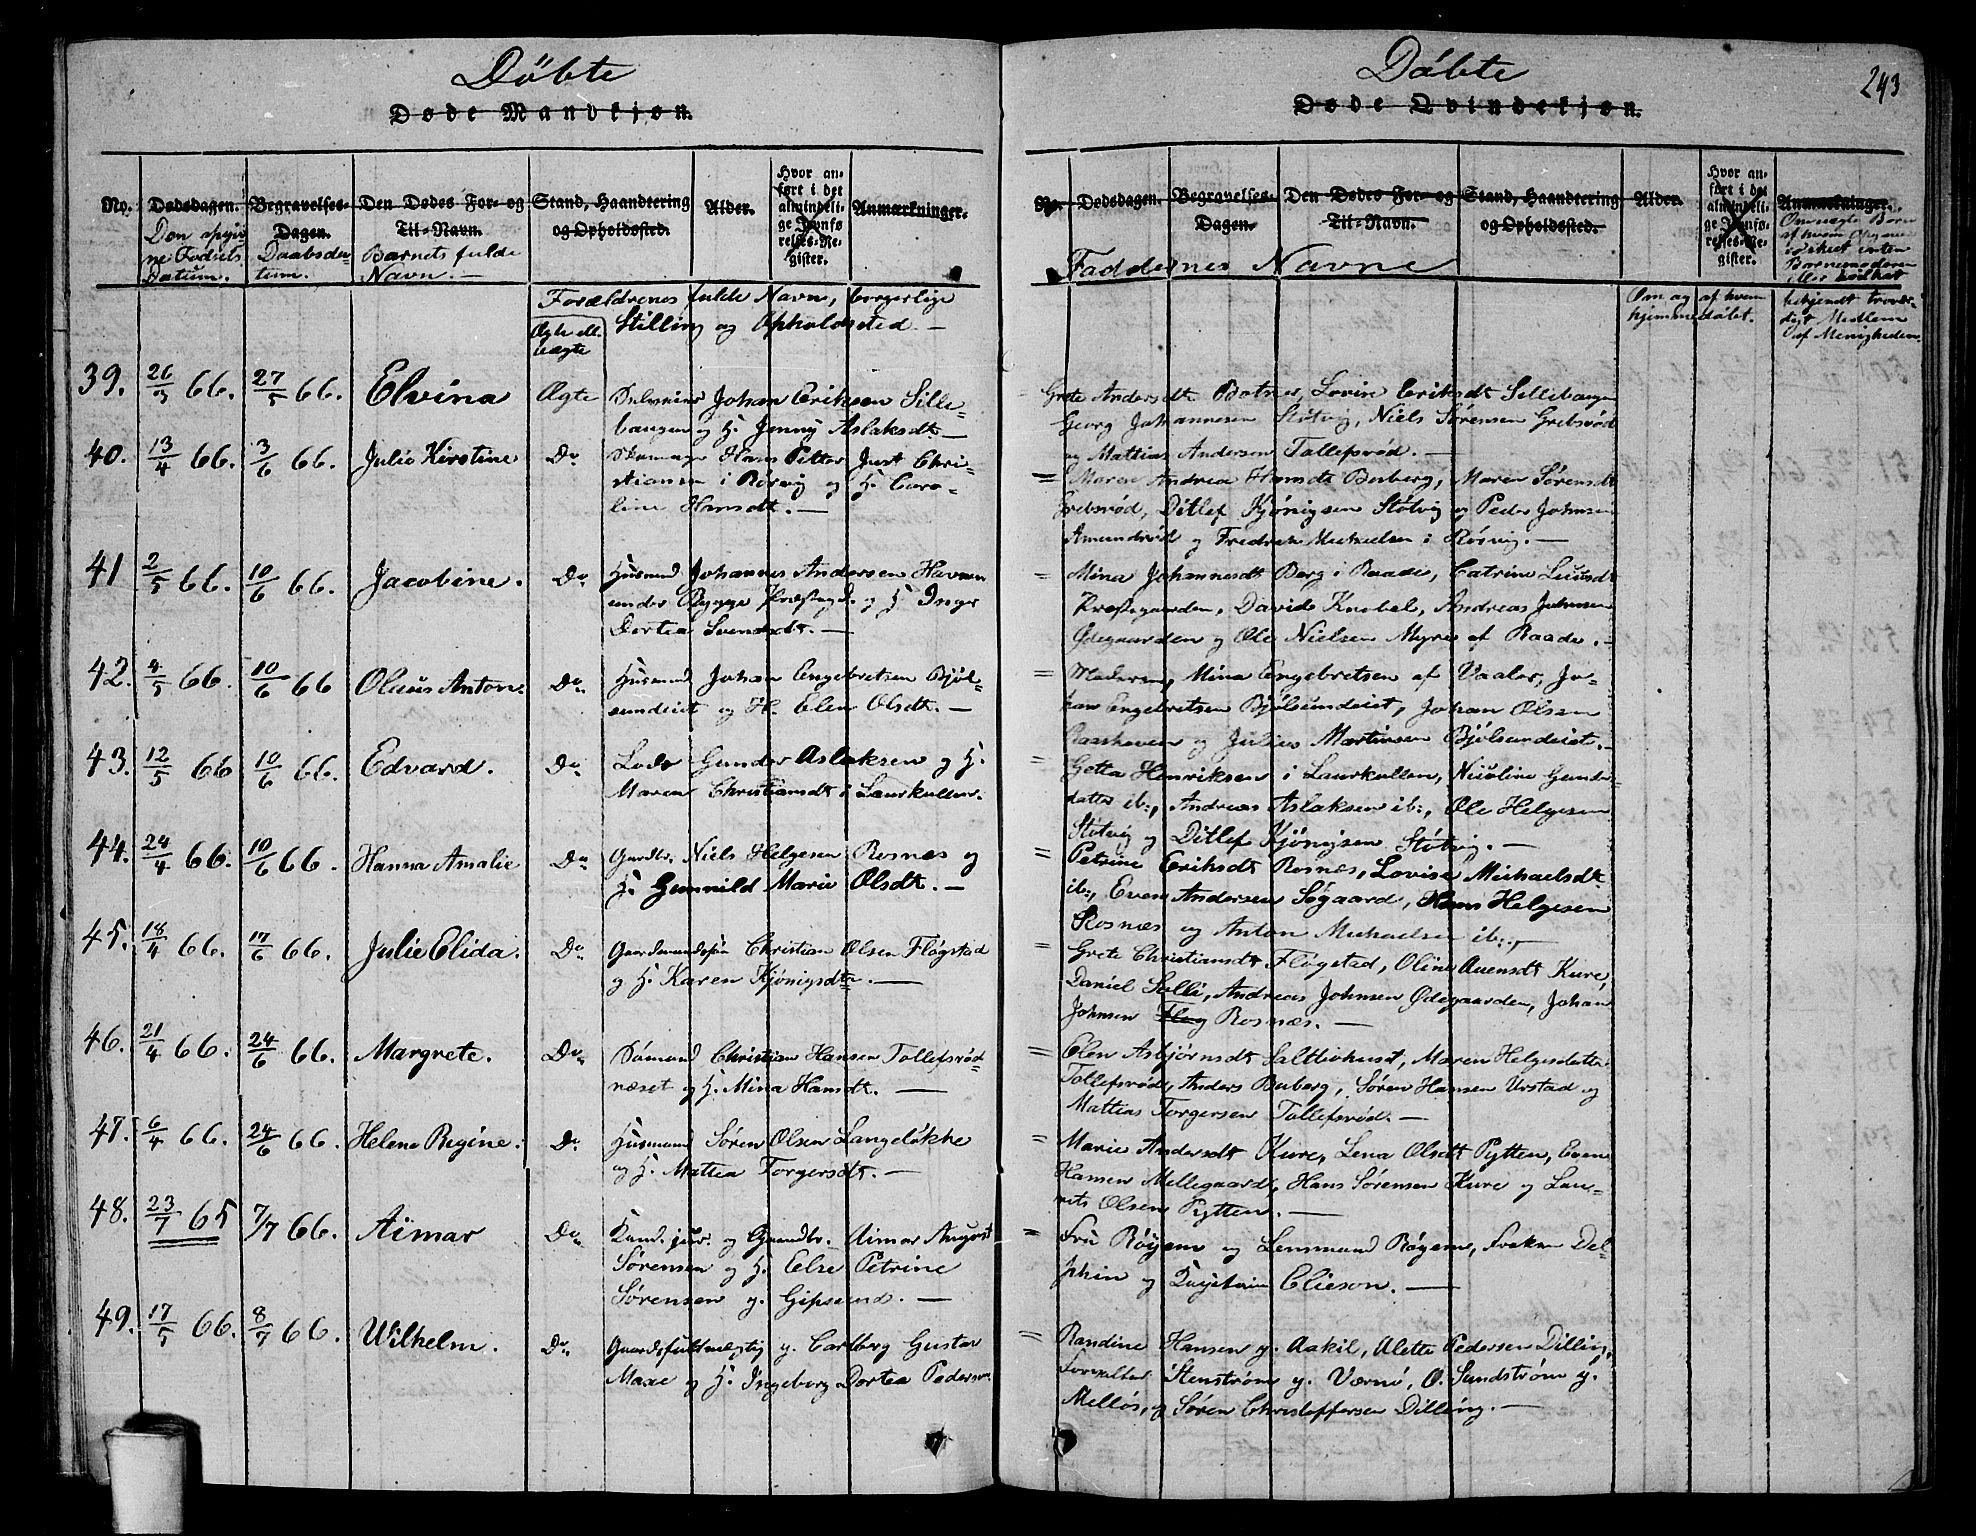 Döbte
Døde Mandkjøn.
No. Dødsdagen. Begravelses-Dagen. Den Dødes For- og Til-Navn. Stand, Haandtering og Opholdssted. Alder. Hvor anført i det almindelige Jevnførelses-Register. Anmærkninger.
Den opgivne Fødsels Datum. Daabsdatum. Barnets fulde Navn. —
Forældrenes fulde Navne, borgerlige
Stilling og Opholdssted. —
Ægte ell. uægte
39. 26/3 66. 27/5 66. Elvina Ægte Selveier Johan Eriksen Sille-
bangen og H. Jenny Aslaksdt. —
40. 13/4 66. 3/6 66. Julie Kirstine Do Hans Petter Just Chri-
stiansen i Rørvig og H. Caro-
line Hansdt. —
41 2/5 66. 10/6 66. Jacobine. Do Husmand Johannes Andersen Havnen
under Rygge Præstegd. og H. Inger
Dortea Svendsdt. —
42. 4/5 66. 10/6 66 Olaus Anton. Do. Husmand Johan Engebretsen Bjöl-
sundeiet og H. Elen Olsdt. —
43. 12/5 66 10/6 66. Edvard. Do. Lods Gunder Aslaksen og H.
Maren Christiansdt i Laurkullen.
44. 24/4 66. 10/6 66. Hanna Amalie Do Gaardbr. Niels Helgesen Rosnæs og
H. Gunnild Marie Olsdt. —
45. 18/4 66. 17/6 66. Julie Elida. Do. Gaardmandssøn Christian Olsen Fløgstad
og H. Karen Kjönigsdtr. —
46. 21/4 66. 24/6 66. Margrete. Do. Sømand Christian Hansen Tollefsrød-
næset og H. Mina Hansdt. —
47. 6/4 66. 24/6 66. Helene Regine. Do. Husmand Søren Olsen Langeløkke
og H. Mattea Torgersdt. —
48. 23/7 65 7/7 66. Aimar Do. Kand. jur. og Gaardbr. Aimar August
Sørensen og H. Else Petrine
Sørensen y. Gipsund. —
49. 17/5 66. 8/7 66. Wilhelm. Do. Gaardsfuldmægtig y. Carlberg Gustav
Maxe og H. Ingeborg Dortea Pedersen.
Döbte
243
Døde Qvindekjøn.
No. Dødsdagen. Begravelses-Dagen. Den Dødes For- og Til-Navn. Stand, Haandtering og Opholdssted. Alder. Hvor anført i det almindelige Jevnførelses-Register. Anmærkninger.
Faddernes Navne
Om og af hvem
hjemmedøbt.
Om uægte Børn
af hvem
enten
Barnemoderen
eller
bekjendt trovær-
digt Medlem
af Menigheden.
Grete Andersdt Botner, Lovise Eriksdt Sillebangen
Georg Johannesen Støtvig, Niels Sørensen Grebsrød
og Mattias Andersen Tollefsrød. —
= Maren Andrea Hansdt Burberg, Maren Sørensdt
Grebsrød, Ditlef Kjönigsen Støtvig og Peder Johnsen
Amundrød og Fredrik Michelsen i Rørvig. —
= Mina Johannesdt Berg i Raade, Catrine
Præstegaarden, David Knobel, Andreas Johnsen
Ødegaarden og Ole Nielsen Myre af Raade. —
= Moderen, Mina Engebretsen af Vaaler, Jo-
han Engebretsen Bjølsundeiet, Johan Olsen
og Julius Martinsen Bjølsundeiet. —
= Getta Henriksen i Laurkullen, Nicoline Gunder
datter ib:, Andreas Aslaksen ib:, Ole Helgesen
Støtvig og Ditlef Kjönigsen Støtvig. —
= Petrine Eriksdt Rosnæs, Lovise Michaelsdt
ib:, Even Andersen Søgaard, Hans Helgesen
Rosnæs og Anton Michaelsen ib:. —
= Grete Christiansdt Fløgstad, Oline Kure,
Daniel Selli, Andreas Johnsen Ødegaarden, Johan
Johnsen Rosnæs. —
= Elen Asbjørnsdt Saltbohuset, Maren Helgesdatter
Tollefsrød, Anders Burberg, Søren Hansen Urstad og
Mattias Torgersen Tollefsrød. —
= Marie Andersdt Kure, Lena Olsdt Pytten, Even
Hansen Mellegaard, Hans Sørensen Kure og Lau-
rits Olsen Pytten. —
= Fru Røyem og Lensmand Røyem, Frøken Del-
phin og Clieson. —
= Randine Hansen y. Aakil, Alette Pedersen Dilling,
Forvalter Stenstrøm y. Værnø, O. Sundstrøm y.
Melløs, og Søren Christoffersen Dilling. —